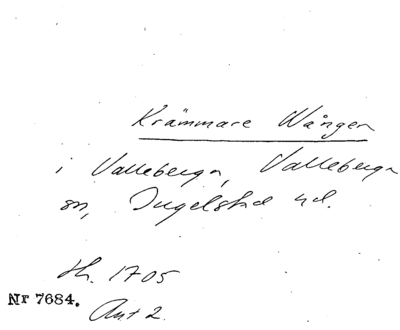 Krämmare Wången
i Valleberga, Valleberga
sn, Ingelstad hd.
th. 1705
Nr 7684.
Ant 2.